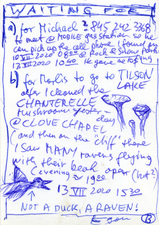 WAITING FEE
a) for Michael 845 242 3838
to meet @ MOBILE gas station so he
can pick up the cell phone I found
12 VII 2020 @
13 VII 2020 10 40 He gave me
b) for Merlis to go to TILSON LAKE
after I cleaned the
CHANTERELLE
mushroom yesterday
@ CLOVE CHAPEL
and then on the cliff there
I saw MANY ravens flying
with their beak open (hot?)
(evening ≈ 19 30
13 VII 2020 15 30
NOT A DUCK, A RAVEN!